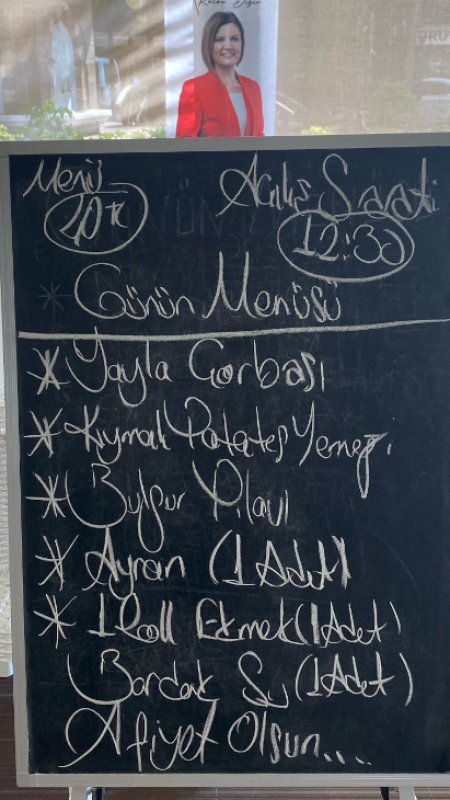 Menü
40 TL
Açılış Saati
12:30
Günün Menüsü
* Yayla Çorbası
* Kıymalı Patates Yemeği
* Bulgur Pilavı
* Ayran (1 Adet)
* 1 Roll Ekmek (1 Adet)
Bardak Su (1 Adet)
Afiyet Olsun....